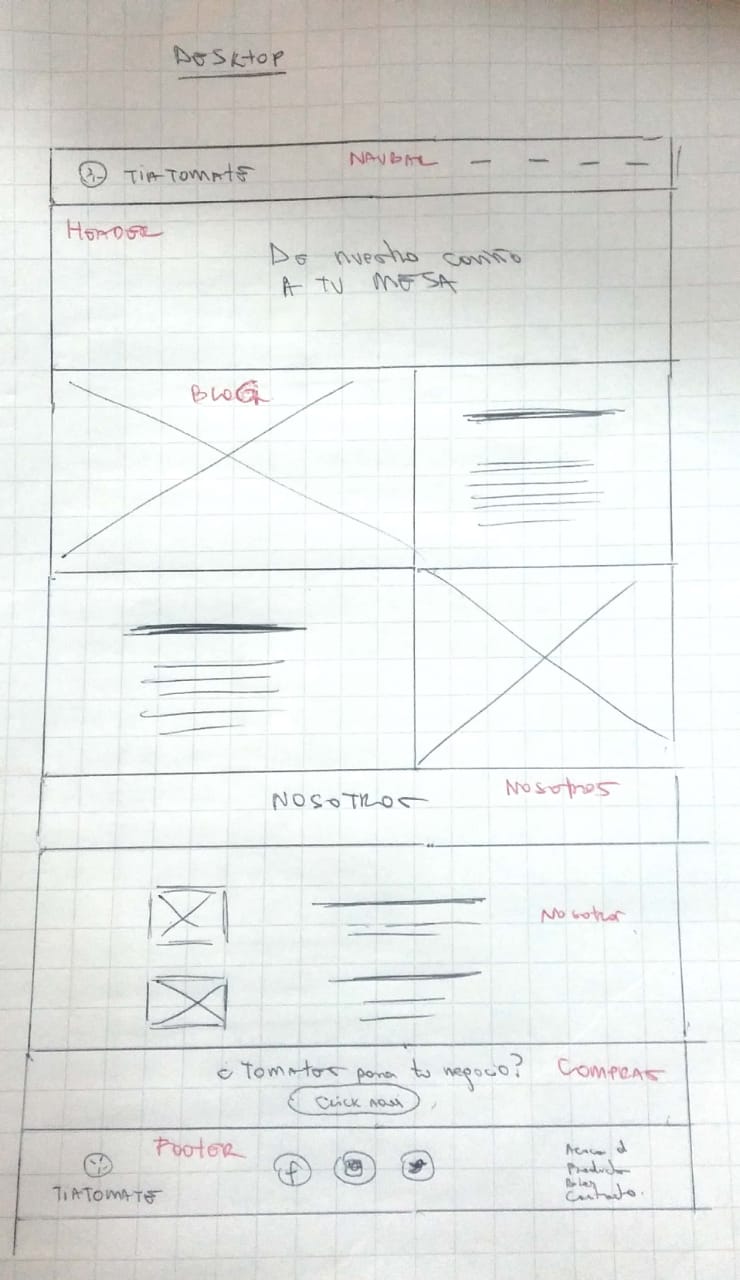 DESKTOP
TIATOMATE NAVBAR
HEADER
De nuestro cariño
A TU MESA
BLOG
NOSOTROS NOSOTROS
NOSOTROS
¿Tomates para tu negocio? COMPRAS
Click
FOOTER
f
TIATOMATE
Acerca d
Producto
Blog
Contacto.